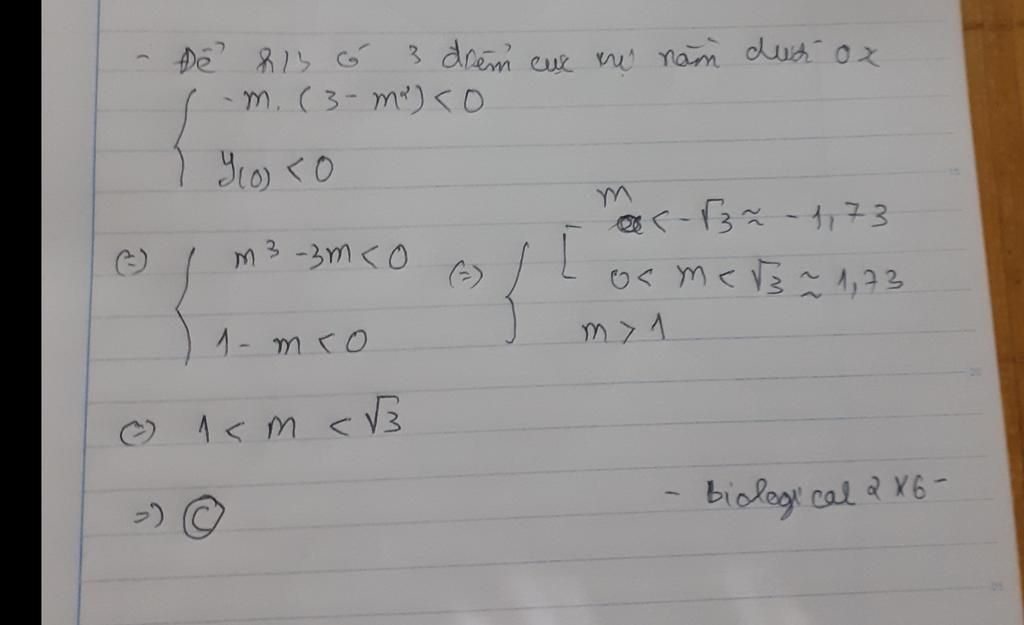 - Để có 3 điểm cực trị nằm dưới ox
- m. (3 - m²) < 0
y(0) < 0
(=) m³ - 3m < 0 (=) m < -√3 ≈ - 1,73
0 < m < √3 ≈ 1,73
1 - m < 0 m > 1
(=) 1 < m < √3
=) C
- biological 2 x 6 -